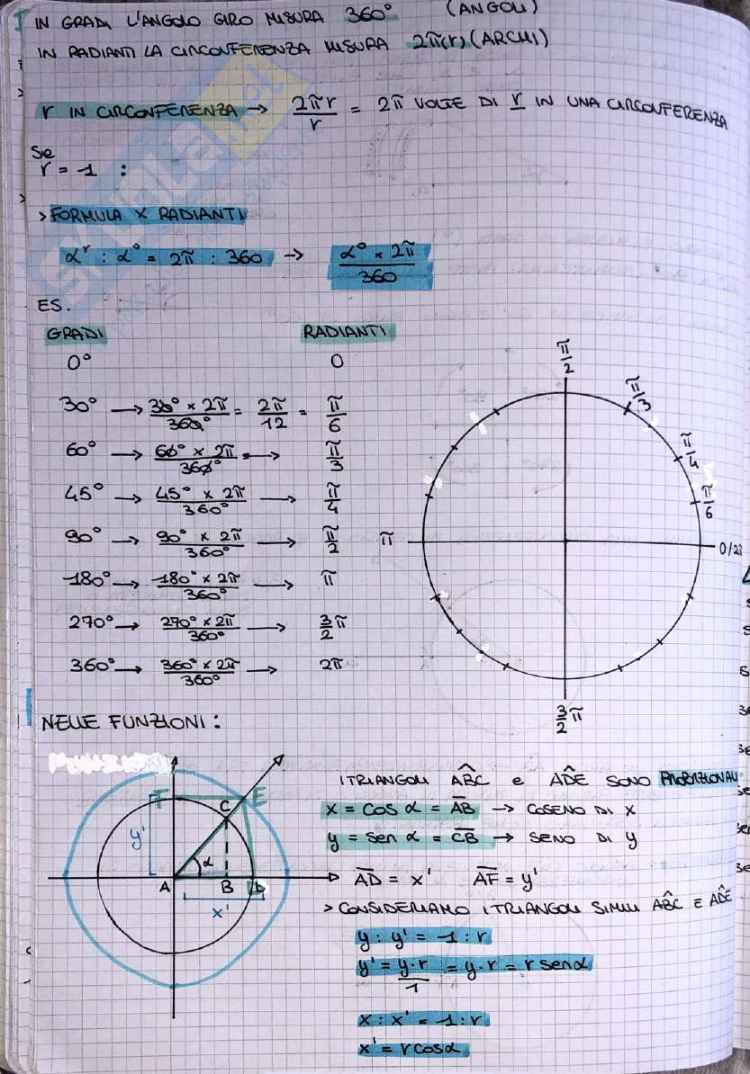 IN GRADI L'ANGOLO GIRO MISURA 360° (ANGOLI)
IN RADIANTI LA CIRCONFERENZA MISURA 2π(r) (ARCHI)
r IN CIRCONFERENZA → 2πr/r = 2π VOLTE DI r IN UNA CIRCONFERENZA
Se
r = 1 :
> FORMULA X RADIANTI
αʳ : α° = 2π : 360 → α° × 2π / 360
ES.
GRADI RADIANTI
0° 0
30° → 30° × 2π / 360° = 2π/12 = π/6
60° → 60° × 2π / 360° → π/3
45° → 45° × 2π / 360° → π/4
90° → 90° × 2π / 360° → π/2
180° → 180° × 2π / 360° → π
270° → 270° × 2π / 360° → 3/2 π
360° → 360° × 2π / 360° → 2π
π/2
π/3
π/4
π/6
π
0/2π
3/2 π
NELLE FUNZIONI:
F C E
y'
α
A B D
x'
I TRIANGOLI ABC e ADE SONO PROPORZIONALI
x = cos α = AB → COSENO DI X
y = sen α = CB → SENO DI y
AD = x' AF = y'
> CONSIDERIAMO I TRIANGOLI SIMILI ABC E ADE
y : y' = 1 : r
y' = y·r / 1 = y·r = r senα
x : x' = 1 : r
x' = r cosα